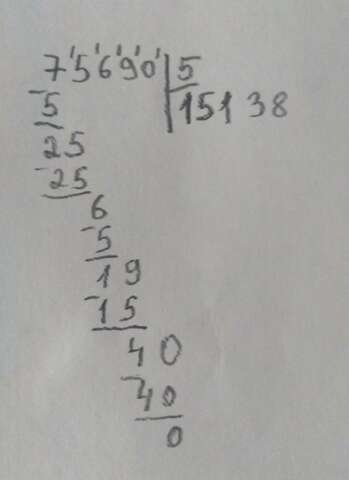 7'5'6'9'0' 5
-5 15138
25
-25
6
-5
19
-15
40
-40
0